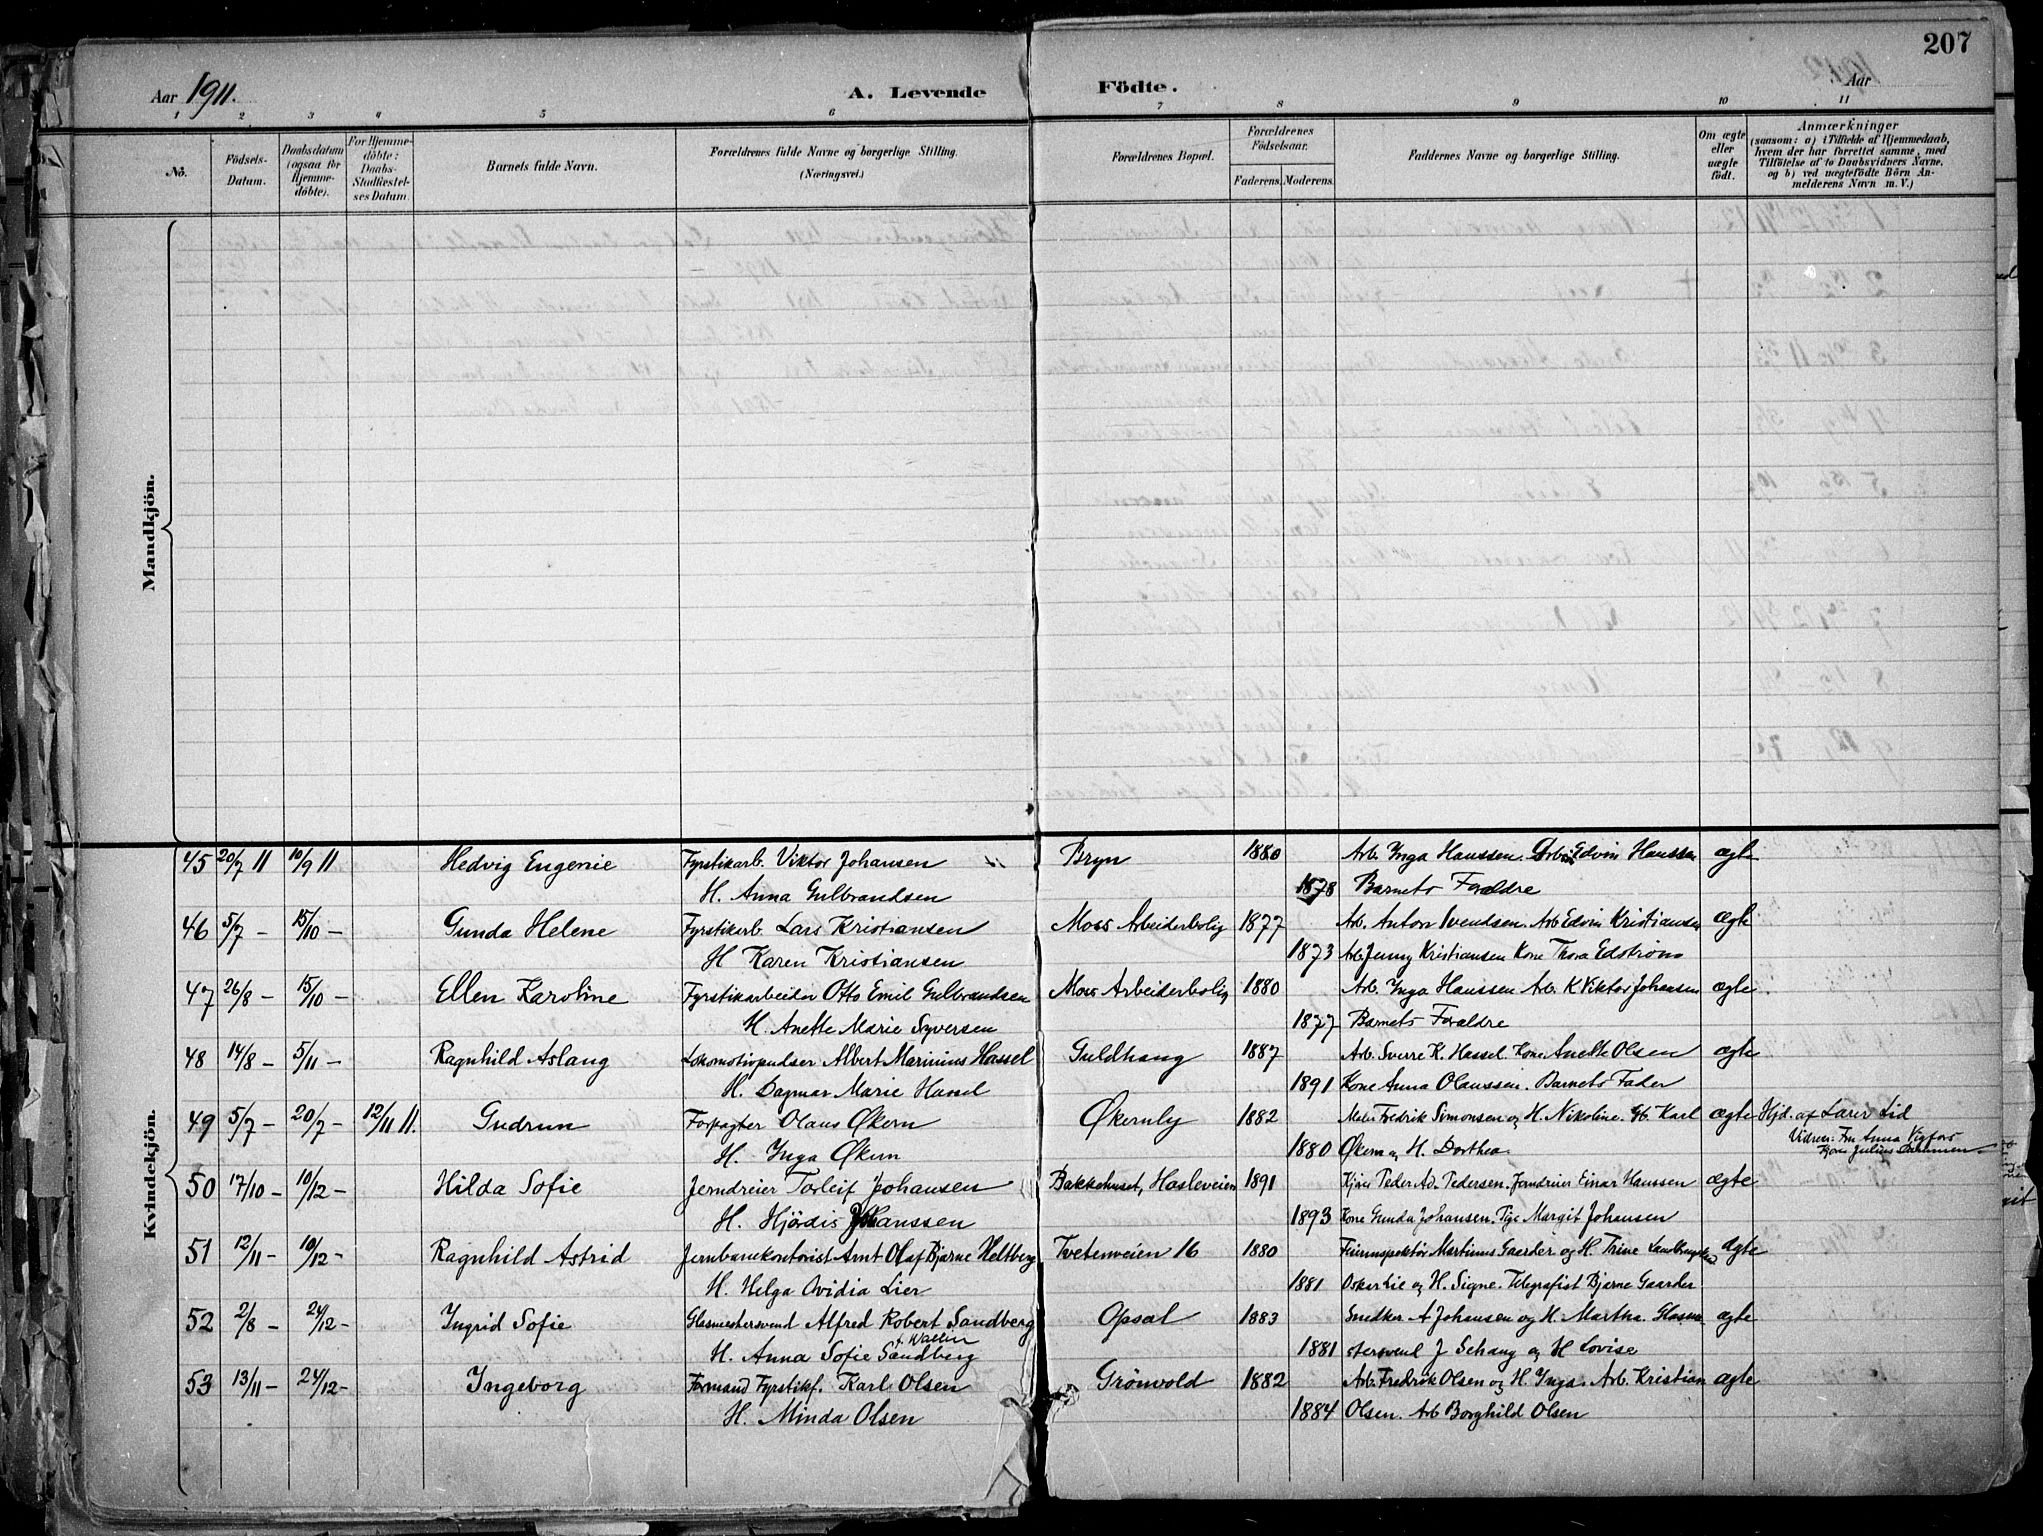 207
Aar 1911. A. Levende Födte. Aar
1 2 3 4 5 6 7 8 9 10 11
No. Födsels-Datum. Daabsdatum (ogsaa for Hjemmedöbte). For Hjemmedöbte: Daabs-Stadfæstelses Datum. Barnets fulde Navn. Forældrenes fulde Navne og borgerlige Stilling. (Næringsvei.) Forældrenes Bopæl. Forældrenes Födselsaar. Faderens. Moderens. Faddernes Navne og borgerlige Stilling. Om ægte eller uægte født. Anmærkninger (saasom: a) i Tilfælde af Hjemmedaab, hvem der har forrettet samme, med Tilföielse af to Daabsvidners Navne, og b) ved uægtefödte Börn Anmelderens Navn m. V.)
Mandkjön.
Kvindekjön.
45 20/7 11 10/9 11 Hedvig Eugenie Fyrstikarb. Viktor Johansen Bryn 1880 Arb. Inga Hanssen. Edvin Hanssen ægte
H. Anna Gulbrandsen 1878 Barnets Forældre
46 5/7 - 15/10 - Gunda Helene Fyrstikarb. Lars Kristiansen Moss Arbeiderbolig 1877 Arb. Anton Svendsen. Arb Edvin Kristiansen ægte
H Karen Kristiansen 1873 Arb Jenny Kristiansen Kone Thora Edström
47 26/8 - 15/10 - Ellen Karoline Fyrstikarbeider Otto Emil Gulbrandsen Moss Arbeiderbolig 1880 Arb. Inga Hanssen Arb. K Viktor Johansen ægte
H. Anette Marie Syversen 1877 Barnets Forældre
48 14/8 - 5/11 - Ragnhild Aslaug Lokomotivpudser Albert Marinius Hassel Guldhaug 1887 Arb. Sverre K. Hassel. Kone Anette Olsen ægte
H. Dagmar Marie Hassel 1891 Kone Anna Olaussen. Barnets Fader
49 5/7 - 20/7 - 12/11 11. Gudrun Forpagter Olaus Økern Økernly 1882 Fredrik Simonsen og H. Nikoline. Gb. Karl ægte Hjd. af Lærer Lid
H. Inga Økern 1880 Økern og H. Dorthea Vidner: Fru Anna Vigfors
Kone Julius
50 17/10 - 10/12 - Hilda Sofie Jerndreier Torleif Johansen Bakkehuset, Hasleveien 1891 Kjøre Peder Ad. Pedersen. Jerndreier Einar Hanssen ægte
H. Hjördis Johanssen 1893 Kone Gunda Johansen. Pige Margit Johansen
51 12/11 - 10/12 - Ragnhild Astrid Jernbanekontorist Arnt Olaf Bjarne Heltberg Tvetenveien 16 1880 Martinus Gaarder og H. Trine ægte
H. Helga Ovidia Lier 1881 Oskar Lie og H. Signe. Telegrafist Bjarne Gaarder
52 2/8 - 24/12 - Ingrid Sofie Glasmestersvend Alfred Robert Sandberg Opsal 1883 Snedker A Johansen og H. Martha. Glasme- ægte
f. Wallin
H. Anna Sofie Sandberg 1881 stersvend J Schang og H Lovise
53 13/11 - 24/12 - Ingeborg Formand Fyrstikf. Karl Olsen Grönvold 1882 Arb. Fredrik Olsen og H. Inga. Arb. Kristian ægte
H. Minda Olsen 1884 Olsen. Arb Borghild Olsen